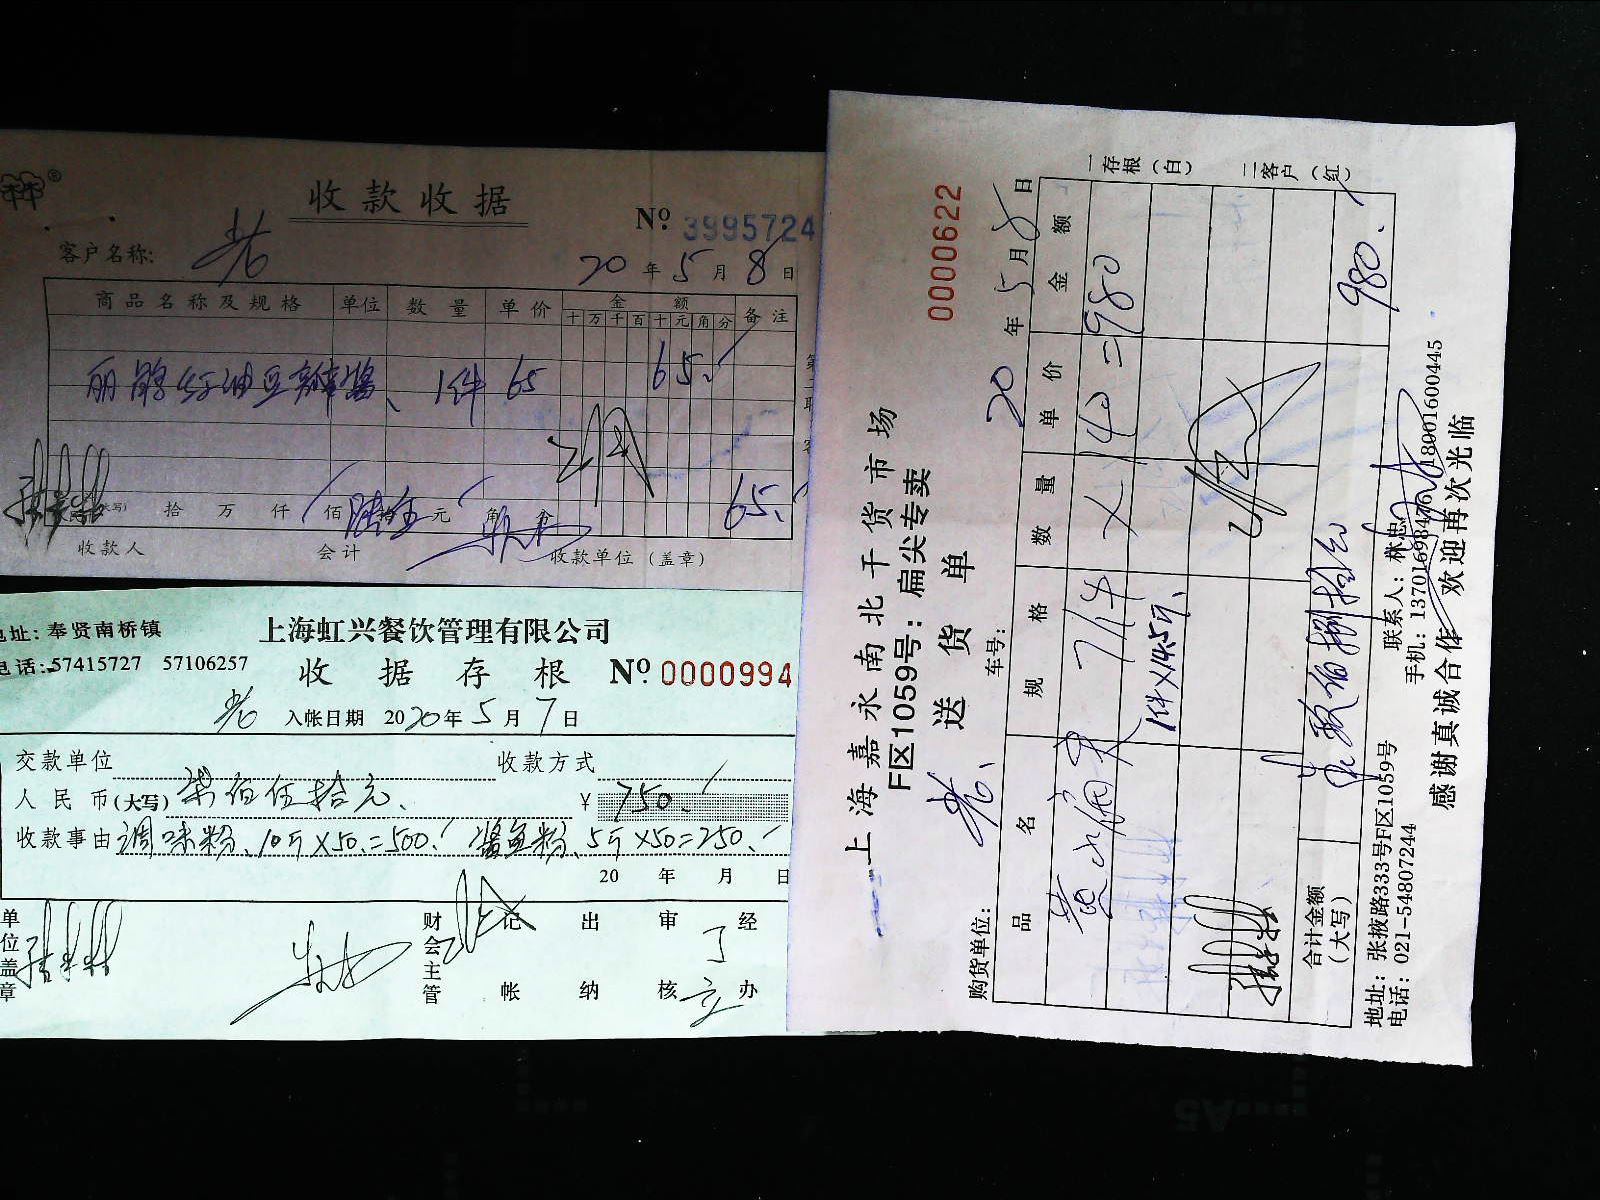 收款收据
№ 3995724
客户名称: 老
20年5月8日
商品名称及规格 单位 数量 单价 金额 备注
十 万 千 百 十 元 角 分
丽鹃红油豆瓣酱、 1件 65 65.
拾 万 仟 佰 陆拾伍元 角 分 65.
收款人 会计 收款单位(盖章)
地址: 奉贤南桥镇
上海虹兴餐饮管理有限公司
电话: 57415727 57106257
收据存根 № 0000994
老 入帐日期 2020年5月7日
交款单位 收款方式
人民币(大写) 柒佰伍拾元、 ¥ 750.
收款事由 调味粉、10斤×50=500. 酱鱼粉、5斤×50=250.
20 年 月 日
单位盖章 财会主管 记帐 出纳 审核 经办
0000622
一存根(白) 二客户(红)
上海嘉永南北干货市场
F区1059号: 扁尖专卖
送货单
购货单位: 老、 车号: 20年5月8日
品名 规格 数量 单价 金额
7件×140=980
1件×145斤、
合计金额(大写) 玖佰捌拾元 980.
地址: 张掖路333号F区1059号 联系人: 林忠
电话: 021-54807244 手机: 18001600445
感谢真诚合作 欢迎再次光临